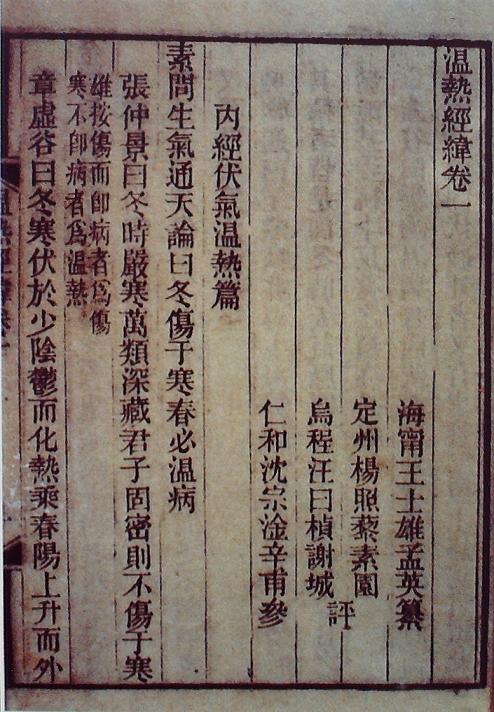 温熱經緯卷一
海甯王士雄孟英纂
定州楊照藜素園
評
烏程汪曰楨謝城
仁和沈宗淦辛甫參
內經伏氣温熱篇
素問生氣通天論曰冬傷于寒春必温病
張仲景曰冬時嚴寒萬類深藏君子固密則不傷于寒
雄按傷而即病者爲傷
寒不即病者爲温熱
章虛谷曰冬寒伏於少陰鬱而化熱乘春陽上升而外